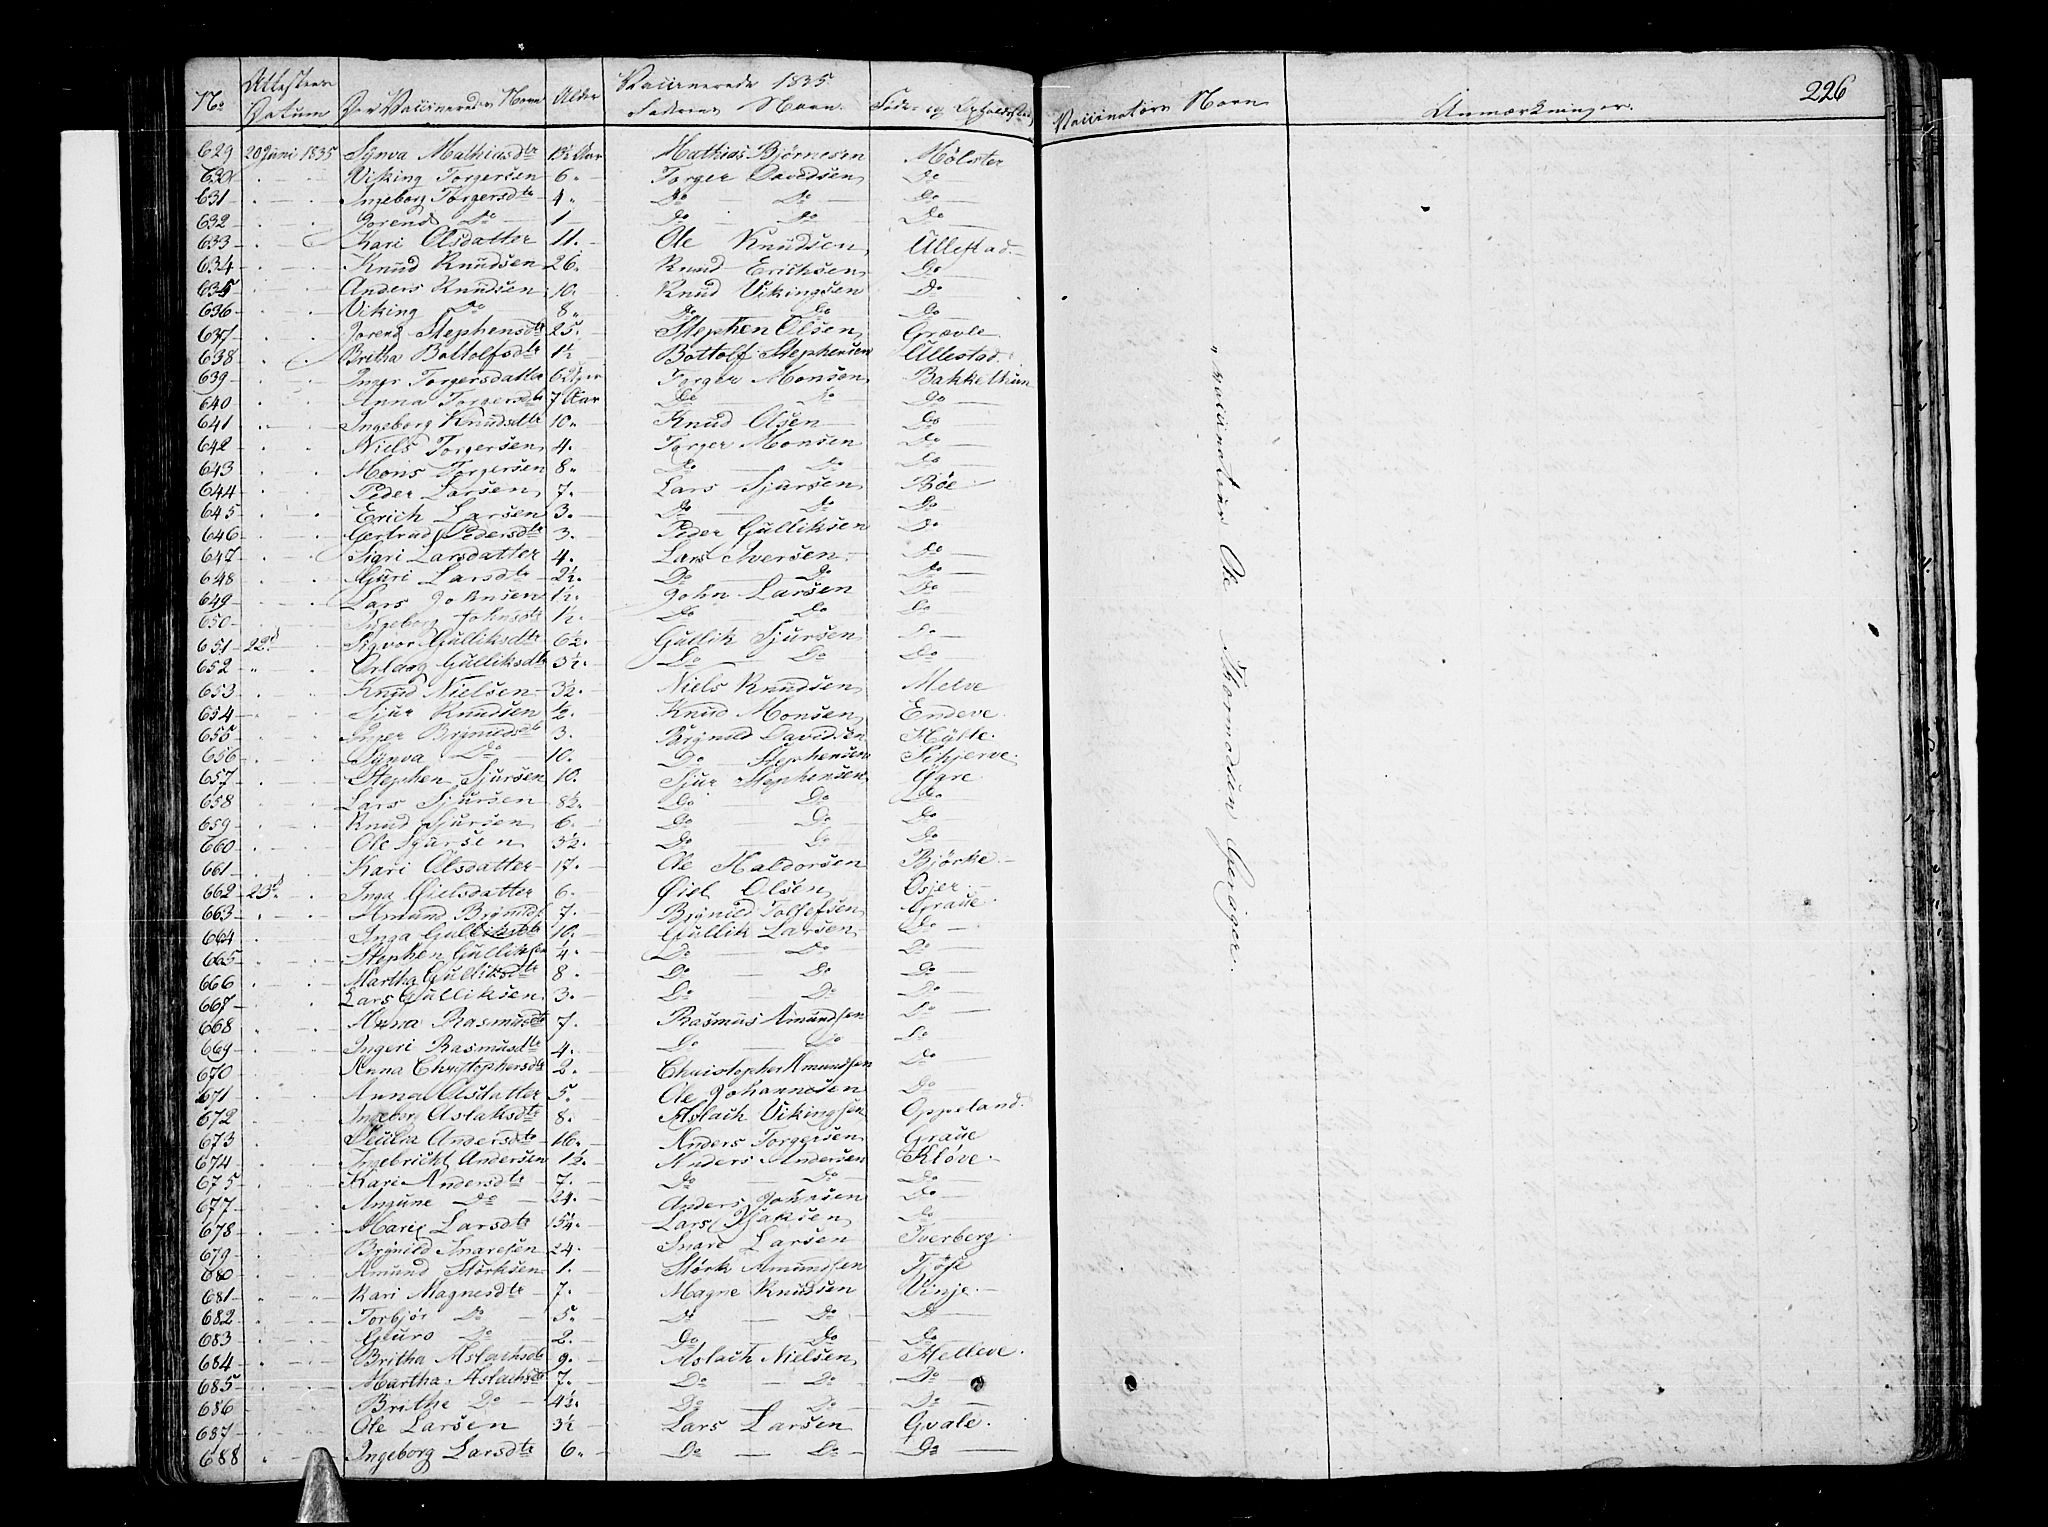 Vaccinerede 1835.
226
No Attestens Datum Den Vaccineredes Navn Alder Faderens Navn. Føde- og Opholdssted Vaccinateurs Navn Anmærkninger.
629 20 Juni 1835 Synva Mathiasdtr 13½ Aar Mathias Bjørnesen Mølster
630 Viking Torgersen 6. Torger Davidsen Do
631 Ingeborg Torgersdtr 4 Do Do Do
632 Do 1 Do Do Do
633 Kari Olsdatter 11. Ole Knudsen Ullestad.
634 Knud Knudsen 26. Knud Erichsen Do
635 Anders Knudsen 10. Knud Vikingsen Do
636 Viking Do 8 Do Do Do
637 Stephensdtr 25. Stephen Olsen Grævle
638 Britha Bottolfsdtr 1½ Bottolf Stephensen Ullestad.
639 Inger Torgersdatter 6 Uger Torger Monsen Bakkethun
640 Anna Torgersdtr 7 Aar Do Do Do
641 Ingeborg Knudsdtr 10. Knud Olsen Do
642 Niels Torgersen 4. Torger Monsen Do
643 Mons Torgersen 8. Do Do Do
644 Peder Larsen 7. Lars Sjursen Bøe
645 Erich Larsen 3. Do Do Do
646 Gertrud Pedersdtr 3. Peder Gulliksen Do
647 Sigri Larsdatter 4. Lars Iversen Do
648 Larsdtr 2½. Do Do Do
649 Lars Johnsen 1½. John Larsen Do
650 Ingeborg Johnsdtr 1½. Do Do Do
651 22d Sigvor Gulliksdtr 6½. Gullik Sjursen Do
652 Gulliksdtr 3½. Do Do Do
653 Knud Nielsen 3½. Niels Knudsen Melve
654 Sjur Knudsen ½. Knud Monsen Endeve.
655 Inger Brynildsdtr 3. Brynild Davidsen
656 Synva Do 10. Do Stephensen
657 Stephen Sjursen 10. Sjur Stephensen Øgre
658 Lars Sjursen 8½. Do Do Do
659 Knud Sjursen 6. Do Do Do
660 Ole Sjursen 3½. Do Do Do
661 Kari Olsdatter 17. Ole Haldorsen Bjørke
662 23d Inga Øielsdatter 6. Øiel Olsen Osjer
663 Amund Brynilds. 7. Brynild Tollefsen Graue
664 Inga Gulliksdtr 10. Gullik Larsen Do
665 Stephen Gulliksen ¼. Do Do Do
666 Martha Gulliksdtr 8. Do Do Do
667 Lars Gulliksen 3. Do Do Do
668 Anna Rasmusdtr 7. Rasmus Amundsen Do
669 Ingeri Rasmusdtr 4. Do Do Do
670 Anna Christophersdtr 2. Christopher Amundsen Do
671 Anna Olsdatter 5. Ole Johannesen Do
672 Ingeborg Aslaksdtr 8. Aslach Vikingsen Oppeland.
673 Andersdtr 16. Anders Torgersen Graue
674 Ingebricht Andersen 1½. Anders Andersen Kløve
675 Kari Andersdtr 7. Do Do Do
677 Do 24. Anders Johnsen Do
678 Mari Larsdtr 15¼. Lars Isaksen Do
679 Brynild Snaresen 24. Snare Larsen Tverberg.
680 Amund Størksen 1. Størk Amundsen
681 Kari Magnesdtr 7. Magne Knudsen Vinje
682 Torbjør Do 5. Do Do Do
683 Guro Do 2. Do Do Do
684 Britha Aslachsdtr 9. Aslach Nielsen Helleve.
685 Martha Aslachsdtr 7. Do Do Do
686 Brithe Do 4½. Do Do Do
687 Ole Larsen 3½ Lars Larsen Gvale.
688 Ingeborg Larsdtr 6. Do Do Do
Vaccinateur Ole Thormodsen Gjerager.